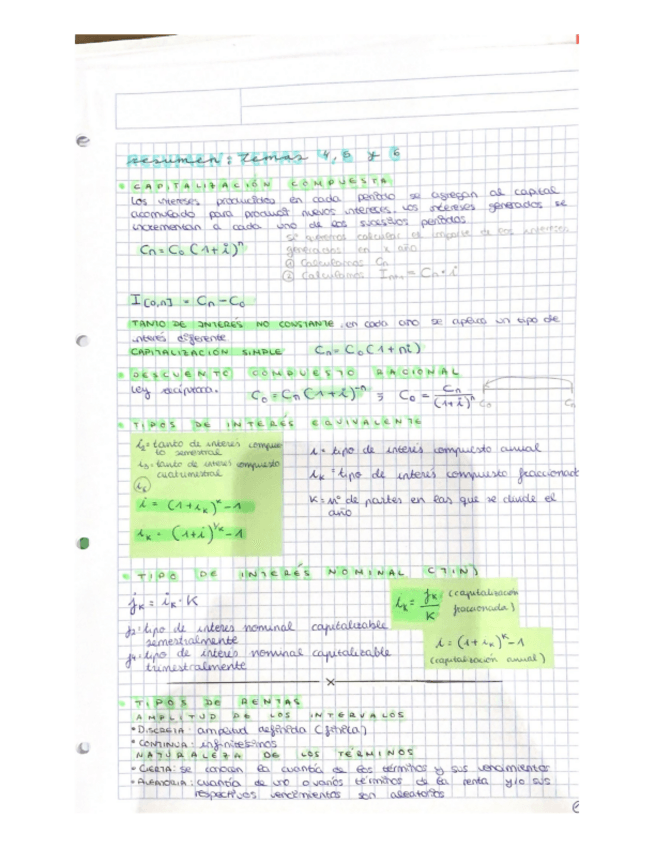 Resumen: Temas 4, 5 y 6
CAPITALIZACIÓN COMPUESTA
Los intereses producidos en cada período se agregan al capital
acumulado para producir nuevos intereses. Los intereses generados se
incrementan a cada uno de los sucesivos períodos
Si queremos calcular el importe de los intereses
Cn = C0 (1+i)^n
generados en x año
① Calculamos Cn
② Calculamos I = Cn · i
I[0,n] = Cn - C0
TANTO DE INTERÉS NO CONSTANTE, en cada año se aplica un tipo de
interés diferente
CAPITALIZACIÓN SIMPLE Cn = C0 (1+ni)
DESCUENTO COMPUESTO RACIONAL
Ley recíproca. C0 = Cn (1+i)^-n ; C0 = Cn/(1+i)^n C0 Cn
TIPOS DE INTERÉS EQUIVALENTE
i2 = tanto de interés compues
to semestral
i3 = tanto de interés compuesto
cuatrimestral
iK
i = (1+iK)^K - 1
iK = (1+i)^1/K - 1
i = tipo de interés compuesto anual
iK = tipo de interés compuesto fraccionad
K = nº de partes en las que se divide el
año
TIPO DE INTERÉS NOMINAL (TIN)
jK = iK · K
iK = jK/K (capitalización
fraccionada)
j2 = tipo de interes nominal capitalizable
semestralmente
j4 = tipo de interes nominal capitalizable
trimestralmente
i = (1+iK)^K - 1
(capitalización anual)
x
TIPOS DE RENTAS
AMPLITUD DE LOS INTERVALOS
• DISCRETA: amplitud definida (finita)
• CONTINUA: infinitesimos
NATURALEZA DE LOS TÉRMINOS
• CIERTA: se conocen la cuantía de los términos y sus vencimientos
• ALEATORIA: cuantía de uno o varios términos de la renta y/o sus
respectivos vencimientos son aleatorios